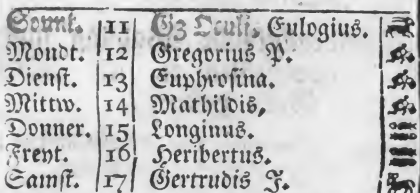 Sonnt. 11 G3 Oculi, Eulogius.
Mondt. 12 Gregorius P.
Dienst. 13 Euphrosina.
Mittw. 14 Mathildis,
Donner. 15 Longinus.
Freyt. 16 Heribertus.
Samst. 17 Gertrudis J.